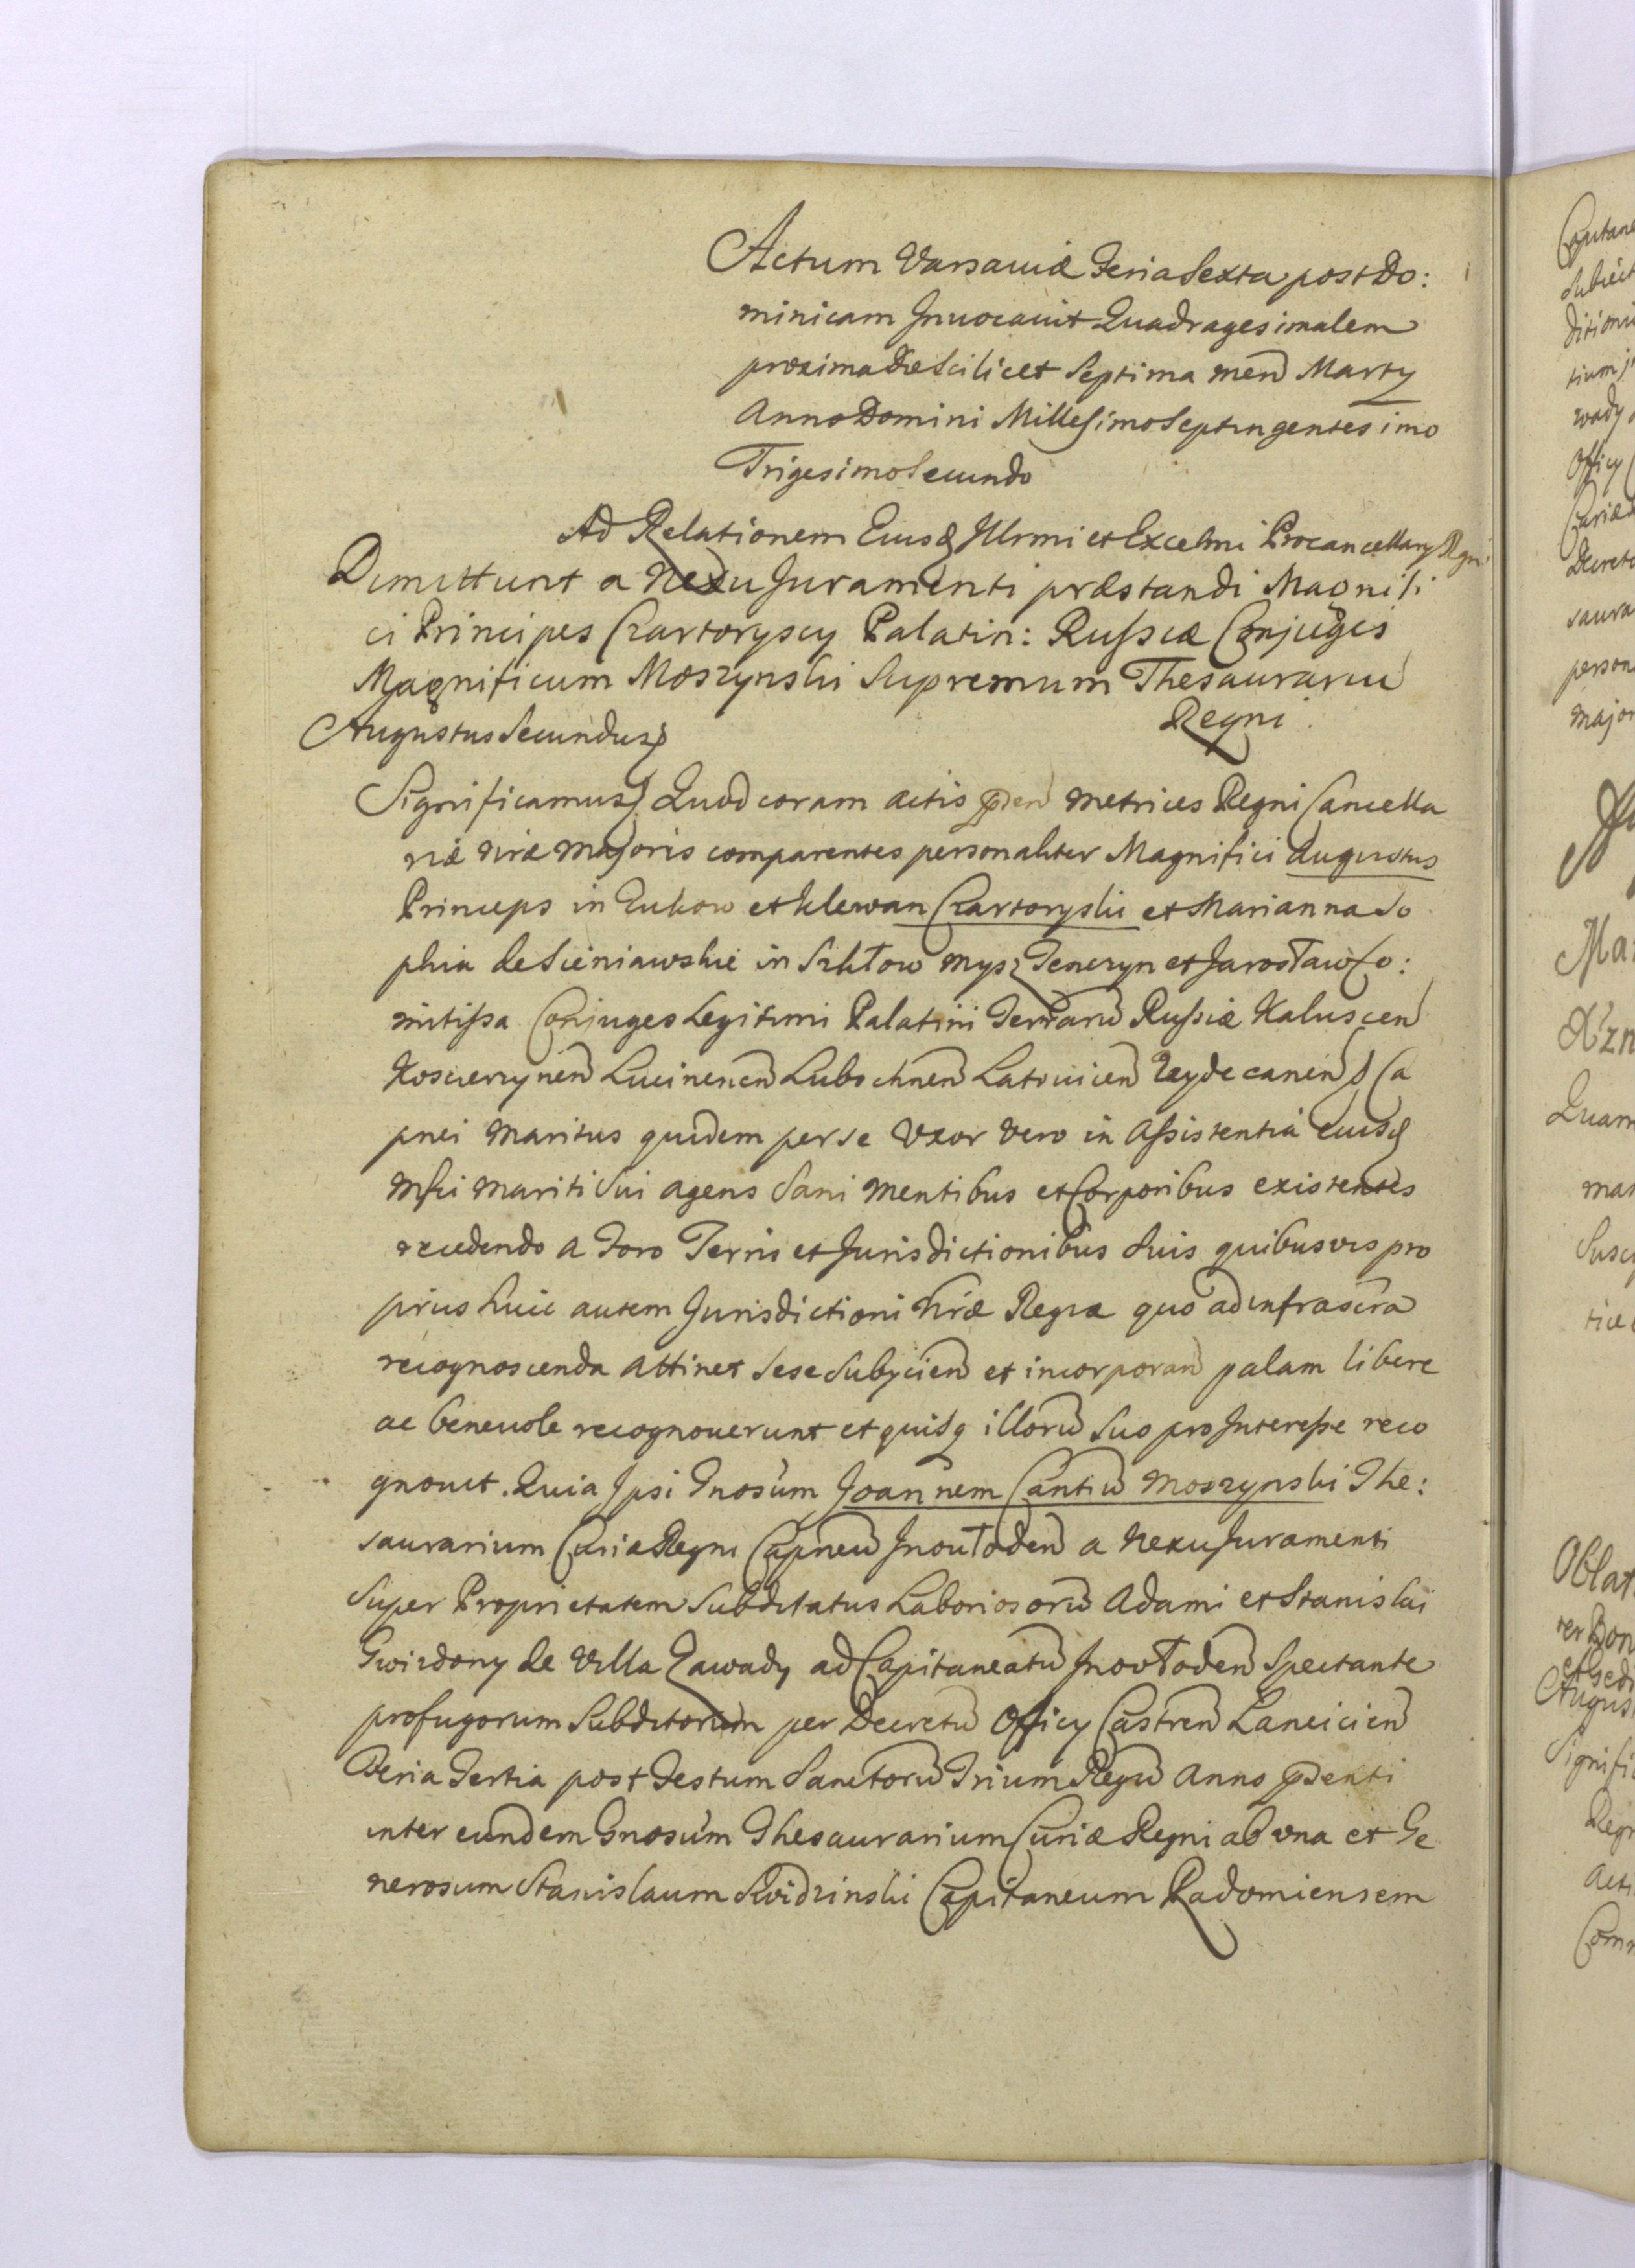 Actum Varsaviæ Feria Sexta post Do:
minicam Invocavit Quadragesimalem
proxima Die Scilicet Septima men Marty
Anno Domini Millesimo Septingentesimo
Trigesimo Secundo
Ad Relationem Eiusq Illrmi et Excelmi Procancellary Regni
Dimittunt a Nexu Juramenti præstandi Magnifi
ci Principes Czartoryscy Palatin: Russiæ Conjuges
Magnificum Moszynski Supremum Thesaurariu
Regni
Augustus Secundus
Significamus Quod coram actis pden Metrices Regni Cancella
riæ nræ majoris comparentes personaliter Magnifici Augustus
Princeps in Zukow et Klewan Czartoryski et Marianna So
phia de Sieniawskie in Szkłow Mysz Tenczyn et Jarosław Co:
mitissa Conjuges Legitimi Palatini Terraru Russiæ Kaluscen
Koscierzynen Lucinenen Lubochnen Latovicen Veydecanen Ca
pnei Maritus quidem per se Uxor vero in Assistentia eiusq
Mfci Mariti Sui agens Sani Mentibus et Corporibus existentes
recedendo a Foro Terris et Jurisdictionibus Suis quibusvis pro
priis huic autem Jurisdictioni Nræ Regiæ quo ad infrascra
recognoscenda attinet Sese Subycien et incorporan palam libere
ac benevole recognoverunt et quisq illoru Suo pro Interesse reco
gnovit. Quia Ipsi Gnosum Joannem Cantiu Moszynski The:
saurarium Curiæ Regni Capneu Inowłoden a Nexu Juramenti
Super Proprietatem Subditatus Laboriosoru Adami et Stanislai
Gwizdony de Villa Zawady ad Capitaneatu Inowłoden Spectante
profugorum Subditorum per Decretu Officy Castren Lancicien
Feria Tertia post Festum Sanctoru Trium Regu Anno pdenti
inter eundem Gnosum Thesaurarium Curiæ Regni ab una et Ge
nerosum Stanislaum Swidzinski Capitaneum Radomiensem